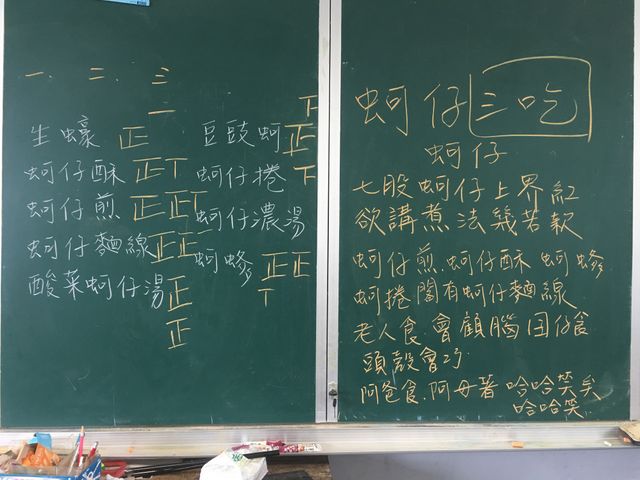 一、二、三
一
生蠔 正
蚵仔酥 正T
蚵仔煎 正正T
蚵仔麵線 正正
酸菜蚵仔湯 正
正
下
豆豉蚵 正
蚵仔捲 下
蚵仔濃湯
蚵 正正
T
蚵仔三吃
蚵仔
七股蚵仔上界紅
欲講煮法幾若款
蚵仔煎.蚵仔酥 蚵
蚵捲閣有蚵仔麵線
老人食會顧腦囝仔食
頭殼會巧
阿爸食.阿母著哈哈笑矣
哈哈笑.